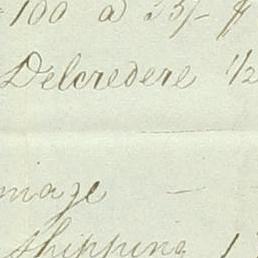 100 a 33/- 
Delcredere 1/2
mage —
Shipping 1